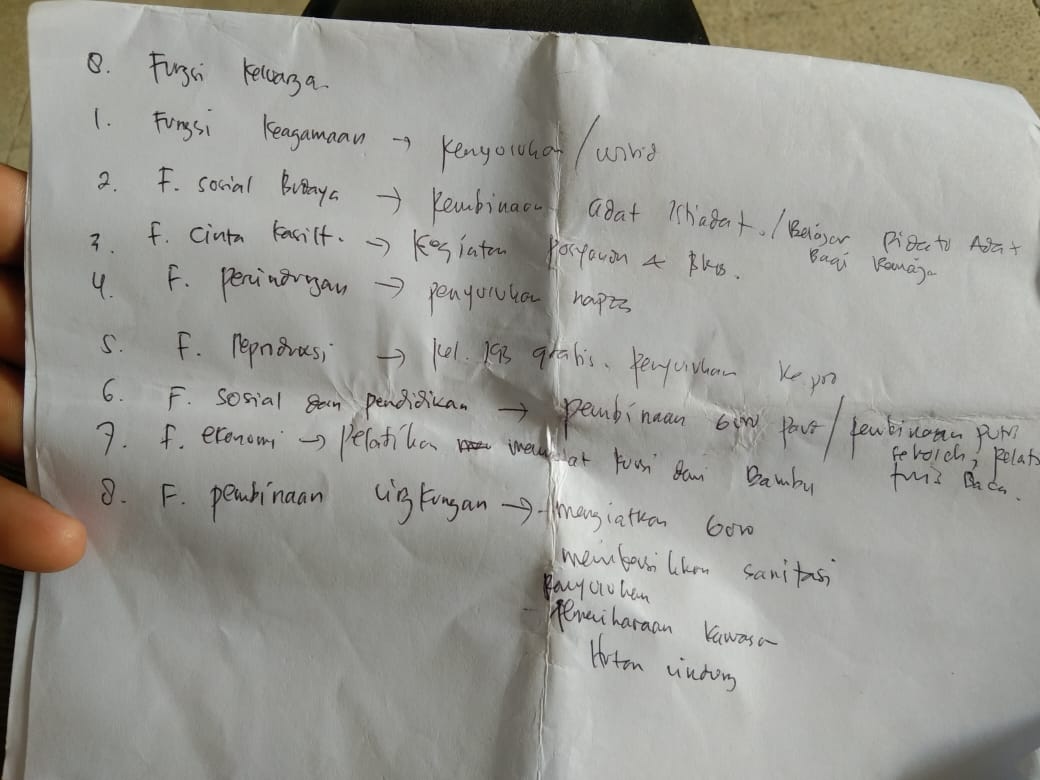 8. Fungsi keluarga
1. Fungsi keagamaan → Penyuluhan / wirid
2. F. sosial Budaya → Pembinaan adat Istiadat. / Belajar Pidato Adat
Bagi Remaja
3. F. cinta kasih. → Kegiatan Posyandu & BKB.
4. F. perlindungan → penyuluhan napza
5. F. Reproduksi → Pel. KB gratis. Penyuluhan kespro
6. F. sosial dan pendidikan → pembinaan Goro / pembinaan putri
sekolah, Pelat
tulis Baca.
7. F. ekonomi → Pelatihan membuat kursi dari Bambu
8. F. pembinaan lingkungan → - mengiatkan Goro
membersihkan sanitasi
Penyuluhan
- Pemeliharaan kawasan
Hutan lindung